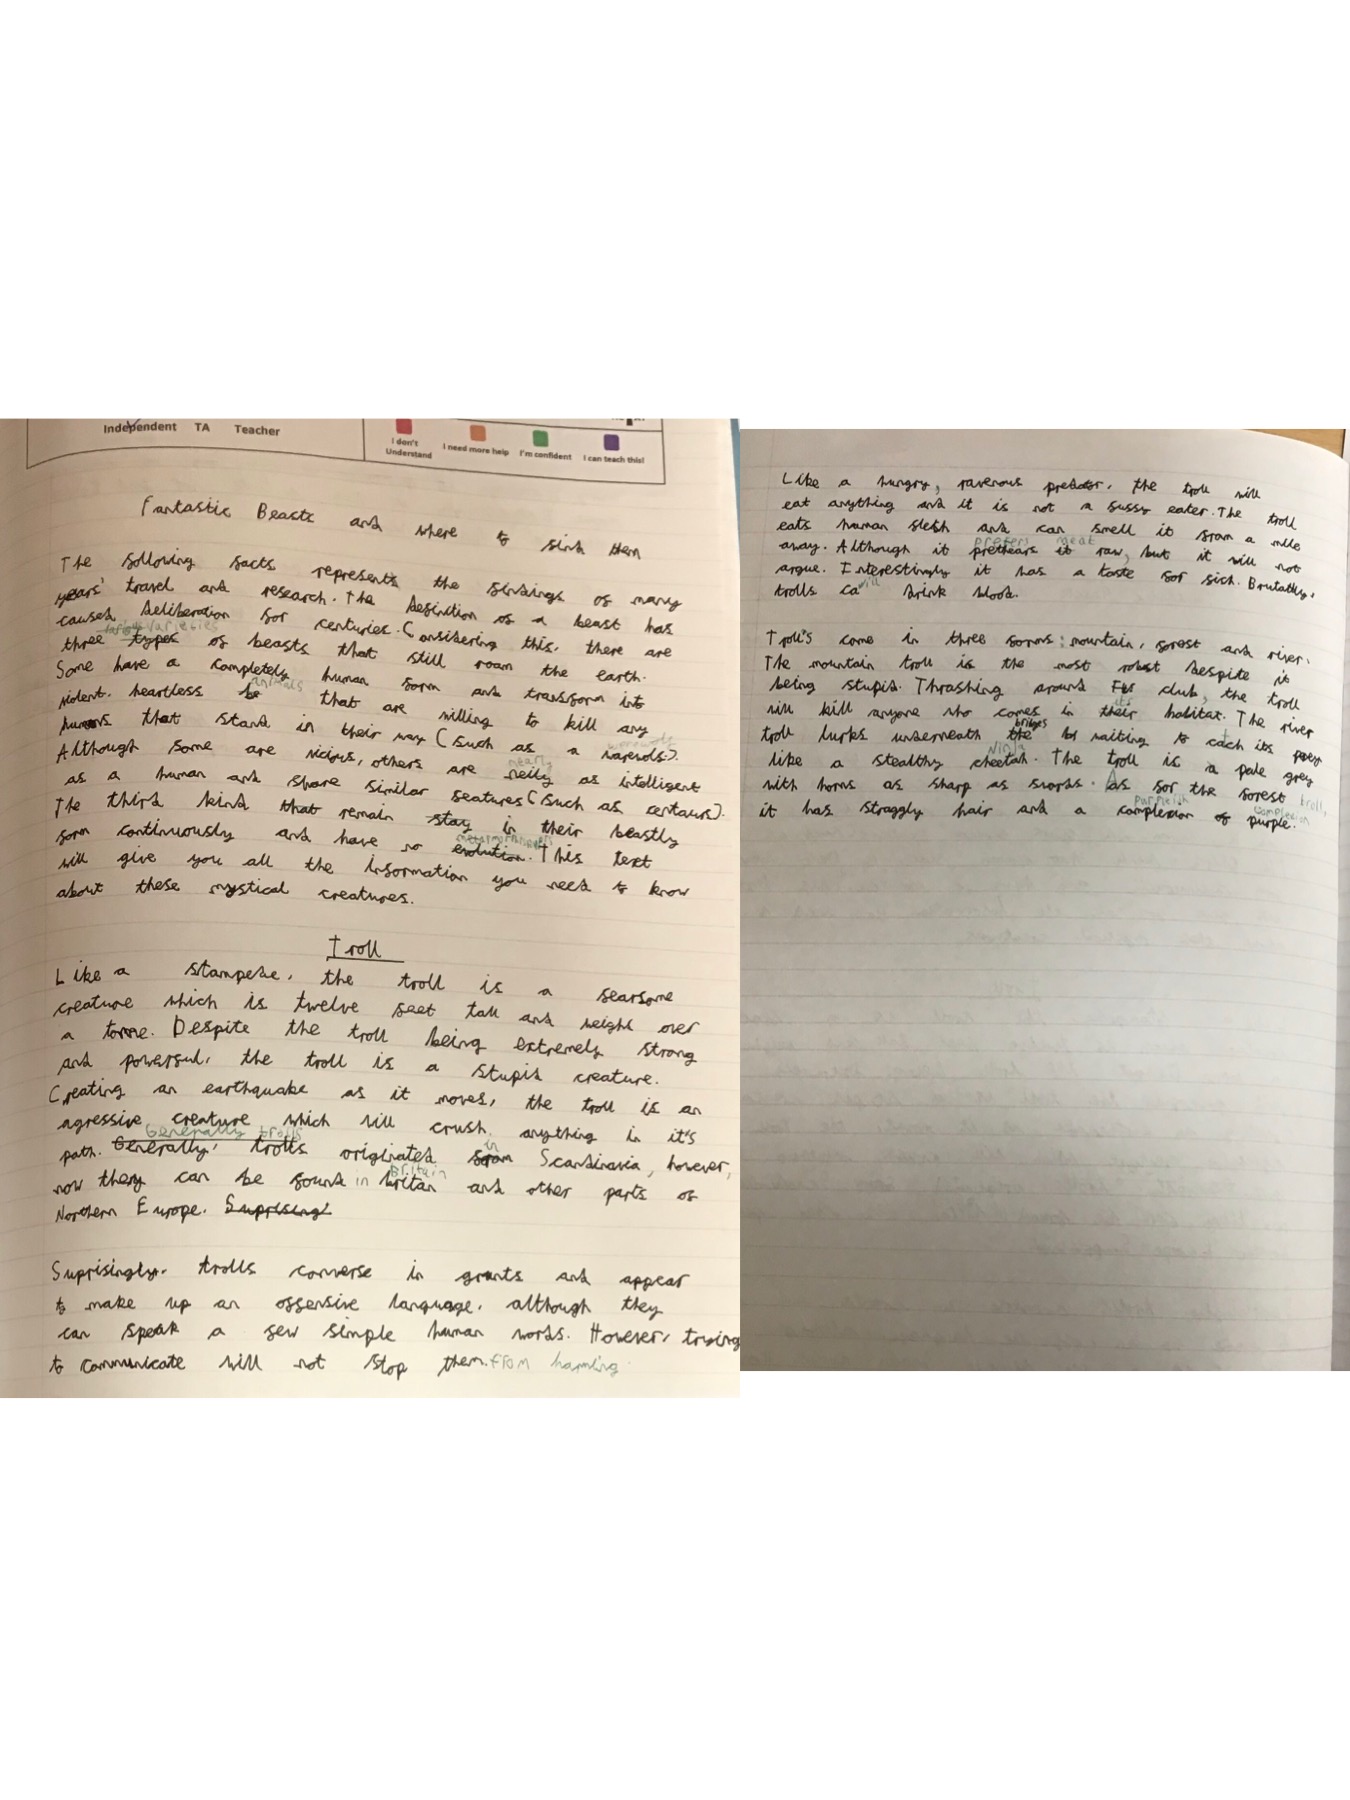 Independent TA Teacher
I don't Understand
I need more help
I'm confident
I can teach this!
Fantastic Beasts and where to find them
The following facts represents the findings of many
years' travel and research. The definition of a beast has
caused deliberation for centuries. Considering this, there are
varieties
three types of beasts that still roam the earth.
Some have a completely human form and transform into
animals
violent, heartless be that are willing to kill any
humans that stand in their way (such as a warewolf).
Although some are vicious, others are neily as intelligent
nearly
as a human and share similar features (such as centaurs).
The third kind that remain stay in their beastly
form continuously and have no evolution. This text
will give you all the information you need to know
about these mystical creatures.
Troll
Like a stampede, the troll is a fearsome
creature which is twelve feet tall and weighs over
a tonne. Despite the troll being extremely strong
and powerful, the troll is a stupid creature.
Creating an earthquake as it moves, the troll is an
agressive creature which will crush anything in it's
Generally trolls
path. Generally, trolls originated from Scandinavia, however,
in
britain
now they can be found in britan and other parts of
Northern Europe. Suprising!
Suprisingly, trolls converse in grunts and appear
to make up an offensive language, although they
can speak a few simple human words. However, trying
to communicate will not stop them from harming
Like a hungry, ravenous predator, the troll will
eat anything and it is not a fussy eater. The troll
eats human flesh and can smell it from a mile
prefers meat
away. Although it prethears it raw, but it will not
argue. Interestingly it has a taste for fish. Brutally,
will
trolls ca drink blood.
Troll's come in three forms: mountain, forest and river.
The mountain troll is the most robust despite it
being stupid. Thrashing around its club, the troll
its
will kill anyone who comes in their habitat. The river
bridges
troll lurks underneath the by waiting to catch its prey
ninja
like a stealthy cheetah. The troll is a pale grey
with horns as sharp as swords. As for the forest troll,
purpleish complexion
it has straggly hair and a complexion of purple.